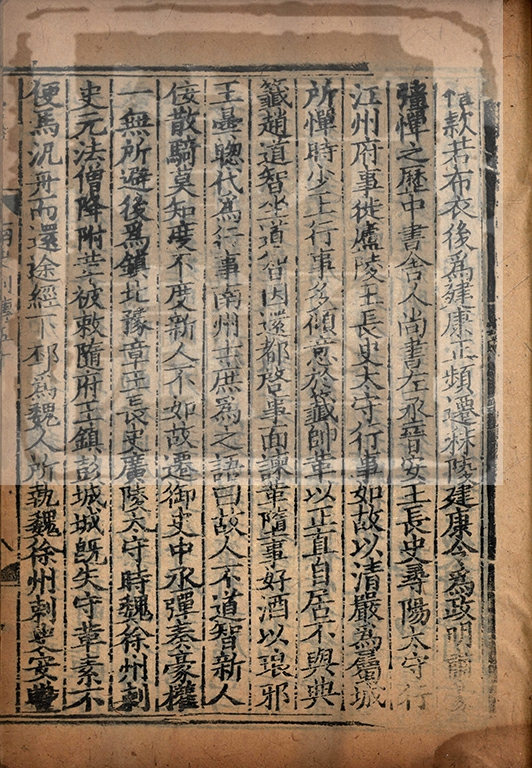 款若布衣後爲建康正頻遷秣陵建康令爲政明肅
彊憚之歴中書舍人尚書左丞晉安王長史尋陽太守行
江州府事徙廬陵王長史太守行事如故以清嚴爲屬城
所憚時少王行事多傾意於籤帥革以正直自居不與典
籤趙道智坐道智因還都啓事面諫革隋事好酒以琅邪
王曇聰代爲行事南州士庶爲之語曰故人不道智新人
佞散騎莫知度不度新人不如故遷御史中丞彈奏豪權
一無所避後爲鎮北豫章王長史廣陵太守時魏徐州刺
史元法僧降附革被敕隨府王鎮彭城城旣失守革素不
便馬汎舟而還途經下邳爲魏人所執魏徐州刺史安豐